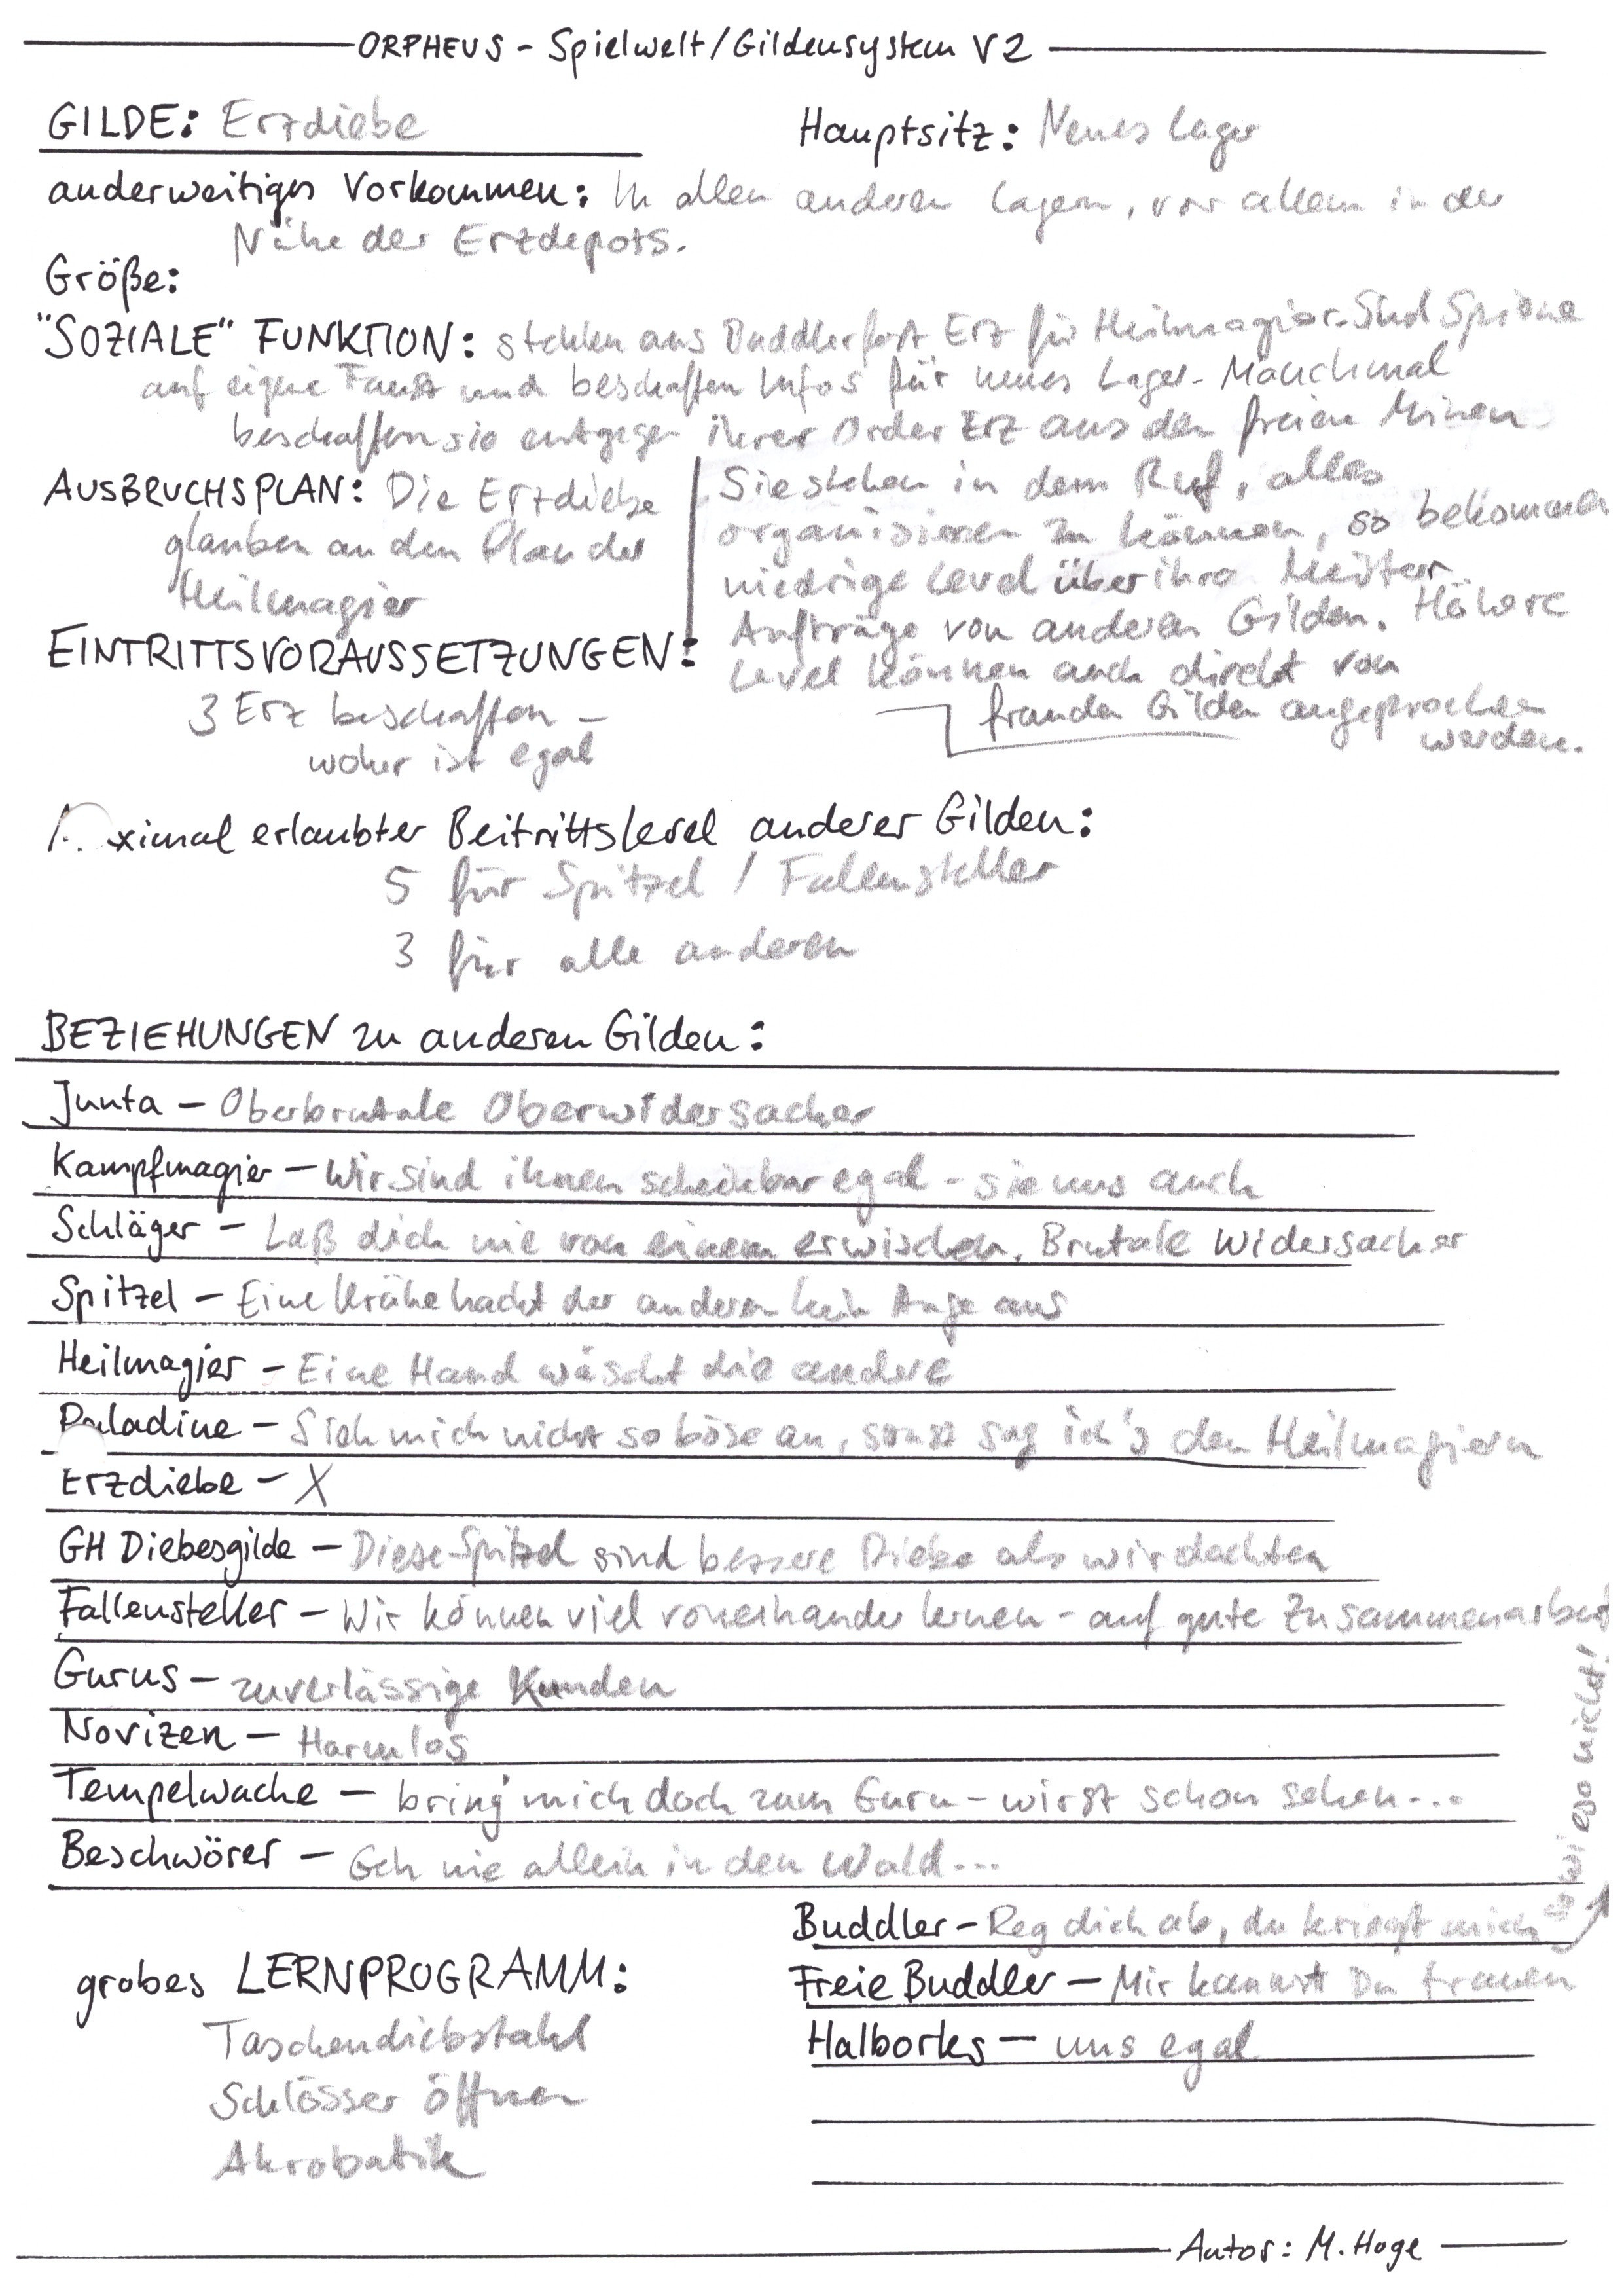 ORPHEUS - Spielwelt/Gildensystem V2
GILDE: Erzdiebe
Hauptsitz: Neues Lager
anderweitiges Vorkommen: In allen anderen Lagern, vor allem in der
Nähe der Erzdepots.
Größe:
"SOZIALE" FUNKTION: stehlen aus Buddlerfort Erz für Heilmagier. Sind Spione
auf eigene Faust und beschaffen Infos für neues Lager. Manchmal
beschaffen sie entgegen ihrer Order Erz aus den freien Minen
AUSBRUCHSPLAN: Die Erzdiebe
glauben an den Plan der
Heilmagier
Sie stehen in dem Ruf, alles
organisieren zu können, so bekommen
niedrige Level über ihre Meister
Aufträge von anderen Gilden. Höhere
Level können auch direkt von
fremden Gilden angesprochen
werden.
EINTRITTSVORAUSSETZUNGEN:
3 Erz beschaffen -
woher ist egal
ximal erlaubter Beitrittslevel anderer Gilden:
5 für Spitzel / Fallensteller
3 für alle anderen
BEZIEHUNGEN zu anderen Gilden:
Junta - Oberbrutale Oberwidersacher
Kampfmagier - Wir sind ihnen scheinbar egal - sie uns auch
Schläger - Laß dich nie von einem erwischen. Brutale Widersacher
Spitzel - Eine Krähe hackt der anderen kein Auge aus
Heilmagier - Eine Hand wäscht die andere
Paladine - Sieh mich nicht so böse an, sonst sag ich's den Heilmagiern
Erzdiebe - X
GH Diebesgilde - Diese Spitzel sind bessere Diebe als wir dachten
Fallensteller - Wir können viel voneinander lernen - auf gute Zusammenarbeit
Gurus - zuverlässige Kunden
Novizen - Harmlos
Tempelwache - bring' mich doch zum Guru - wirst schon sehen...
Beschwörer - Geh nie allein in den Wald...
Buddler - Reg dich ab, du kriegst mich
eso nicht!
Freie Buddler - Mir kannst Du trauen
Halborks - uns egal
grobes LERNPROGRAMM:
Taschendiebstahl
Schlösser öffnen
Akrobatik
Autor: M. Hoge